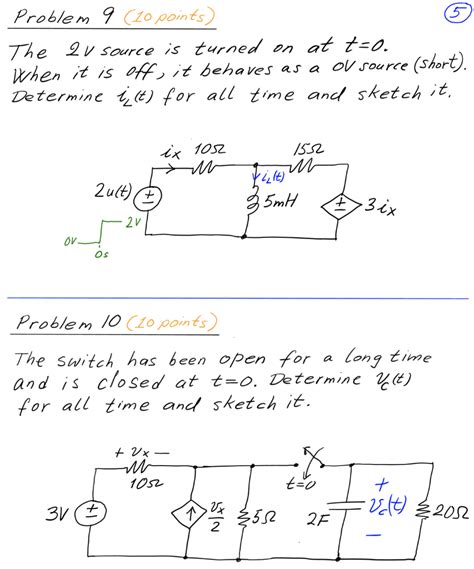 Problem 9 (10 points)
5
The 2V source is turned on at t=0.
When it is off, it behaves as a 0V source (short).
Determine i_L(t) for all time and sketch it.
ix 10Ω 15Ω
i_L(t)
2u(t) 5mH 3ix
2V
0V
0s
Problem 10 (10 points)
The switch has been open for a long time
and is closed at t=0. Determine V_c(t)
for all time and sketch it.
+ Vx −
10Ω
t=0
3V Vx/2 5Ω 2F + V_c(t) − 20Ω